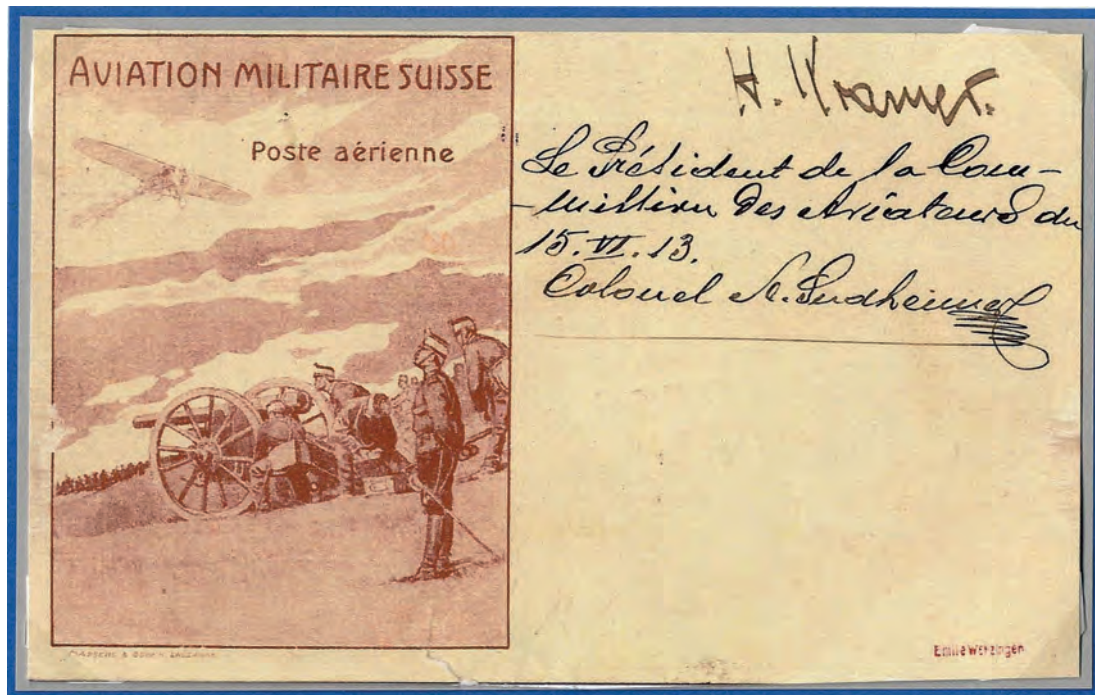 AVIATION MILITAIRE SUISSE
Poste aérienne
H. Kramer.
Le Président de la Com-
-mission des Aviateurs du
15. VI. 13.
Colonel
LAUSANNE
Emile Werzingen